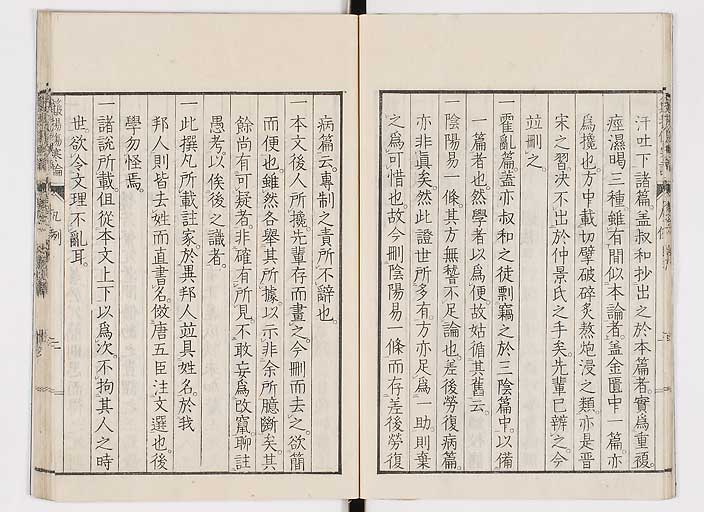 汗吐下諸篇。蓋叔和抄出之於本篇者。實爲重複。
痙濕暍三種。雖有間似本論者。蓋金匱中一篇。亦
爲攙也。方中載切擘破碎炙熬炮浸之類。亦是晋
宋之習。決不出於仲景氏之手矣。先輩已辨之。今
並刪之。
一霍亂篇。蓋亦叔和之徒。剽竊之於三陰篇中。以備
一篇者也。然學者以爲便。故姑循其舊云。
一陰陽易一條。其方無稽。不足論也。差後勞復病篇。
亦非眞矣。然此證世所多有。方亦足爲一助。則棄
之爲可惜也。故今刪陰陽易一條。而存差後勞復
病篇云。專制之責。所不辭也。
一本文後人所攙。先輩存而畫之。今刪而去之。欲簡
而便也。雖然各舉其所據以示非余所臆斷矣。其
餘尚有可疑者。非確有所見。不敢妄爲改竄。聊註
愚考。以俟後之識者。
一此撰凡所載註家。於異邦人。並具姓名。於我
邦人。則皆去姓而直書名。倣唐五臣注文選也。後
學勿怪焉。
一諸說所載。但從本文上下以爲次。不拘其人之時
世。欲令文理不亂耳。
凡例